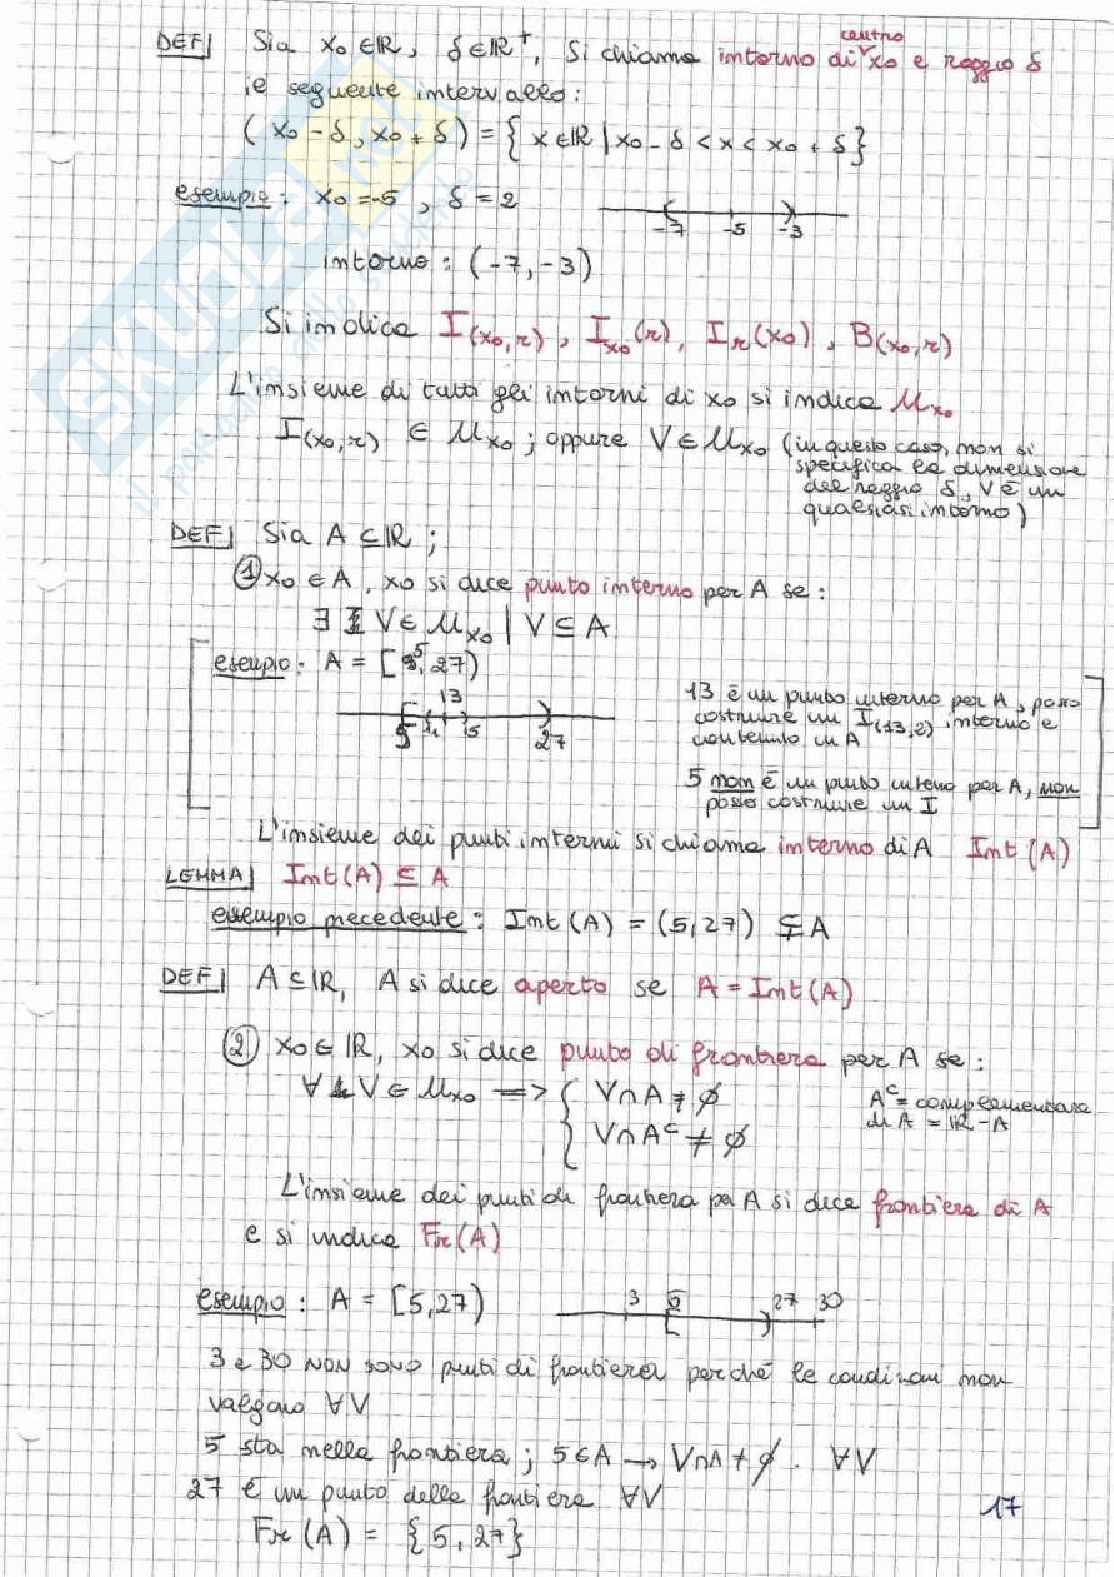 DEF| Sia x₀ ∈ ℝ, δ ∈ ℝ⁺, Si chiama intorno di centro x₀ e raggio δ
il seguente intervallo:
(x₀ - δ, x₀ + δ) = { x ∈ ℝ | x₀ - δ < x < x₀ + δ}
esempio: x₀ = -5, δ = 2
-7 -5 -3
intorno: (-7, -3)
Si indica I(x₀,r), Ix₀(r), Ir(x₀), B(x₀,r)
L'insieme di tutti gli intorni di x₀ si indica 𝒰x₀
I(x₀,r) ∈ 𝒰x₀; oppure V ∈ 𝒰x₀ (in questo caso, non si
specifica la dimensione
del raggio δ, V è un
qualsiasi intorno)
DEF| Sia A ⊆ ℝ;
① x₀ ∈ A, x₀ si dice punto interno per A se:
∃ V ∈ 𝒰x₀ | V ⊆ A
esempio: A = [5, 27)
13
5 11 15 27
13 è un punto interno per A, posso
costruire un I(13,2) interno e
contenuto in A
5 non è un punto interno per A, non
posso costruire un I
L'insieme dei punti interni si chiama interno di A Int (A)
LEMMA| Int(A) ⊆ A
esempio precedente: Int (A) = (5,27) ⊊ A
DEF| A ⊆ ℝ, A si dice aperto se A = Int(A)
② x₀ ∈ ℝ, x₀ si dice punto di frontiera per A se:
∀ V ∈ 𝒰x₀ => { V ∩ A ≠ ∅
V ∩ Aᶜ ≠ ∅
Aᶜ = complementare
di A = ℝ - A
L'insieme dei punti di frontiera per A si dice frontiera di A
e si indica Fr(A)
esempio: A = [5,27)
3 5 27 30
3 e 30 NON SONO punti di frontiera perché le condizioni non
valgono ∀V
5 sta nella frontiera; 5 ∈ A → V∩A ≠ ∅. ∀V
27 è un punto della frontiera ∀V
Fr (A) = {5, 27}
17
SKUOLA.net